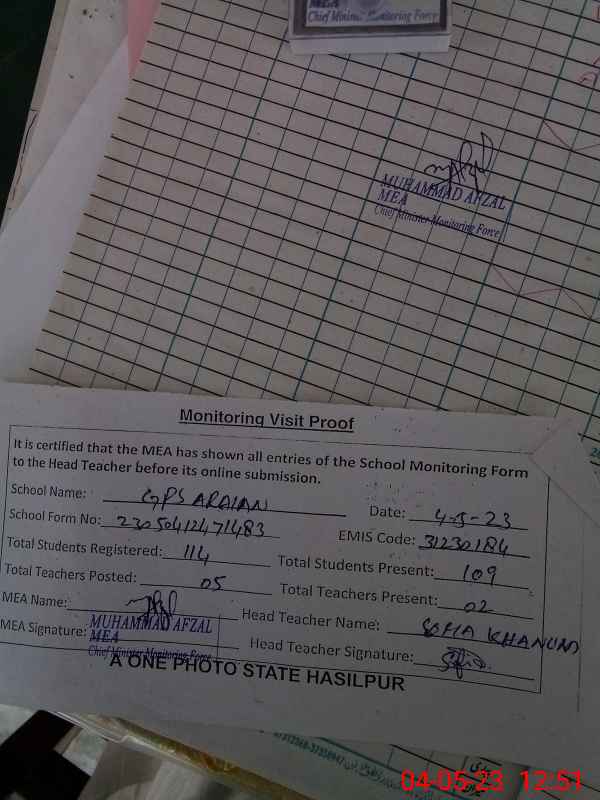 MEA
Chief Minister Monitoring Force
MUHAMMAD AFZAL
MEA
Chief Minister Monitoring Force
Monitoring Visit Proof
It is certified that the MEA has shown all entries of the School Monitoring Form
to the Head Teacher before its online submission.
School Name: GPS ARAIAN Date: 4-5-23
School Form No: 23050412471483 EMIS Code: 31230184
Total Students Registered: 114 Total Students Present: 109
Total Teachers Posted: 05 Total Teachers Present: 02
MEA Name: Head Teacher Name: SOFIA KHANUM
MEA Signature: MUHAMMAD AFZAL Head Teacher Signature: Sofia
MEA
Chief Minister Monitoring Force
A ONE PHOTO STATE HASILPUR
04-05-23 12:51